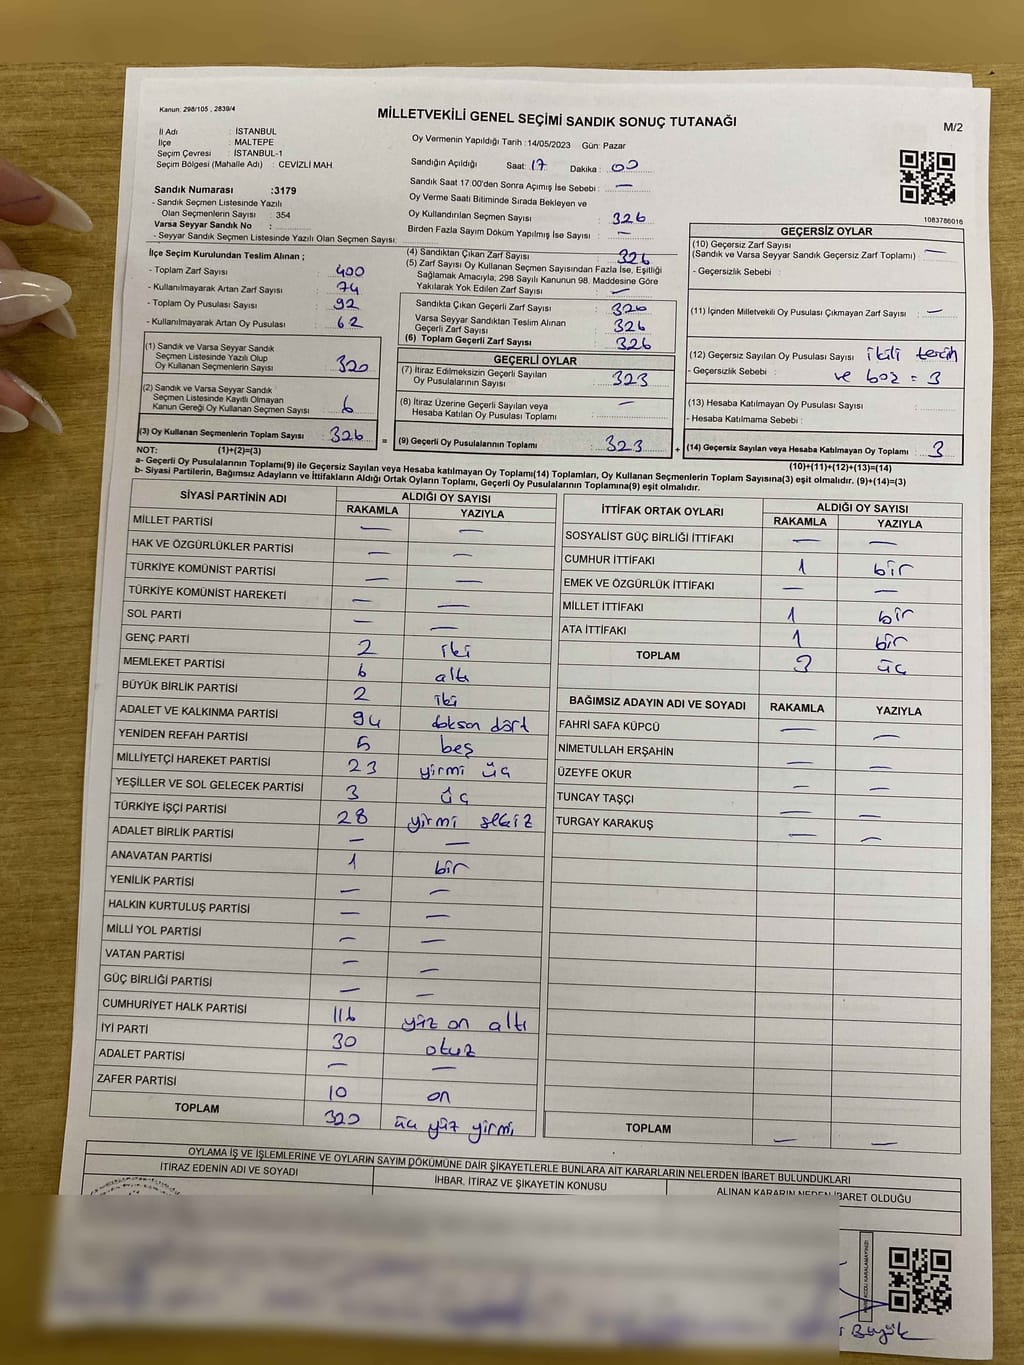 Kanun: 298/105 , 2839/4
MİLLETVEKİLİ GENEL SEÇİMİ SANDIK SONUÇ TUTANAĞI
M/2
İl Adı : İSTANBUL
İlçe : MALTEPE
Seçim Çevresi : İSTANBUL-1
Seçim Bölgesi (Mahalle Adı) : CEVİZLİ MAH.
Sandık Numarası :3179
- Sandık Seçmen Listesinde Yazılı
Olan Seçmenlerin Sayısı : 354
Varsa Seyyar Sandık No :
- Seyyar Sandık Seçmen Listesinde Yazılı Olan Seçmen Sayısı:
Oy Vermenin Yapıldığı Tarih :14/05/2023 Gün: Pazar
Sandığın Açıldığı Saat: 17 Dakika : 00
Sandık Saat 17:00'den Sonra Açımış İse Sebebi : —
Oy Verme Saati Bitiminde Sırada Bekleyen ve
Oy Kullandırılan Seçmen Sayısı : 326
Birden Fazla Sayım Döküm Yapılmış İse Sayısı : —
1083786016
İlçe Seçim Kurulundan Teslim Alınan ;
- Toplam Zarf Sayısı : 400
- Kullanılmayarak Artan Zarf Sayısı : 74
- Toplam Oy Pusulası Sayısı : 92
- Kullanılmayarak Artan Oy Pusulası : 62
(1) Sandık ve Varsa Seyyar Sandık
Seçmen Listesinde Yazılı Olup
Oy Kullanan Seçmenlerin Sayısı : 320
(2) Sandık ve Varsa Seyyar Sandık
Seçmen Listesinde Kayıtlı Olmayan
Kanun Gereği Oy Kullanan Seçmen Sayısı : 6
(3) Oy Kullanan Seçmenlerin Toplam Sayısı : 326 =
(4) Sandıktan Çıkan Zarf Sayısı : 326
(5) Zarf Sayısı Oy Kullanan Seçmen Sayısından Fazla İse, Eşitliği
Sağlamak Amacıyla; 298 Sayılı Kanunun 98. Maddesine Göre
Yakılarak Yok Edilen Zarf Sayısı : —
Sandıkta Çıkan Geçerli Zarf Sayısı : 326
Varsa Seyyar Sandıktan Teslim Alınan
Geçerli Zarf Sayısı : 326
(6) Toplam Geçerli Zarf Sayısı : 326
GEÇERLİ OYLAR
(7) İtiraz Edilmeksizin Geçerli Sayılan
Oy Pusulalarının Sayısı : 323
(8) İtiraz Üzerine Geçerli Sayılan veya
Hesaba Katılan Oy Pusulası Toplamı : —
(9) Geçerli Oy Pusulalarının Toplamı : 323 +
GEÇERSİZ OYLAR
(10) Geçersiz Zarf Sayısı
(Sandık ve Varsa Seyyar Sandık Geçersiz Zarf Toplamı) : —
- Geçersizlik Sebebi :
(11) İçinden Milletvekili Oy Pusulası Çıkmayan Zarf Sayısı : —
(12) Geçersiz Sayılan Oy Pusulası Sayısı : ikili tercih
- Geçersizlik Sebebi : ve boz = 3
(13) Hesaba Katılmayan Oy Pusulası Sayısı :
- Hesaba Katılmama Sebebi :
(14) Geçersiz Sayılan veya Hesaba Katılmayan Oy Toplamı : 3
NOT: (1)+(2)=(3)
(10)+(11)+(12)+(13)=(14)
a- Geçerli Oy Pusulalarının Toplamı(9) ile Geçersiz Sayılan veya Hesaba katılmayan Oy Toplamı(14) Toplamları, Oy Kullanan Seçmenlerin Toplam Sayısına(3) eşit olmalıdır. (9)+(14)=(3)
b- Siyasi Partilerin, Bağımsız Adayların ve İttifakların Aldığı Ortak Oyların Toplamı, Geçerli Oy Pusulalarının Toplamına(9) eşit olmalıdır.
SİYASİ PARTİNİN ADI ALDIĞI OY SAYISI
RAKAMLA YAZIYLA
MİLLET PARTİSİ — —
HAK VE ÖZGÜRLÜKLER PARTİSİ — —
TÜRKİYE KOMÜNİST PARTİSİ — —
TÜRKİYE KOMÜNİST HAREKETİ — —
SOL PARTİ — —
GENÇ PARTİ 2 iki
MEMLEKET PARTİSİ 6 altı
BÜYÜK BİRLİK PARTİSİ 2 iki
ADALET VE KALKINMA PARTİSİ 94 doksan dört
YENİDEN REFAH PARTİSİ 5 beş
MİLLİYETÇİ HAREKET PARTİSİ 23 yirmi üç
YEŞİLLER VE SOL GELECEK PARTİSİ 3 üç
TÜRKİYE İŞÇİ PARTİSİ 28 yirmi sekiz
ADALET BİRLİK PARTİSİ — —
ANAVATAN PARTİSİ 1 bir
YENİLİK PARTİSİ — —
HALKIN KURTULUŞ PARTİSİ — —
MİLLİ YOL PARTİSİ — —
VATAN PARTİSİ — —
GÜÇ BİRLİĞİ PARTİSİ — —
CUMHURİYET HALK PARTİSİ 116 yüz on altı
İYİ PARTİ 30 otuz
ADALET PARTİSİ — —
ZAFER PARTİSİ 10 on
TOPLAM 320 üç yüz yirmi
İTTİFAK ORTAK OYLARI ALDIĞI OY SAYISI
RAKAMLA YAZIYLA
SOSYALİST GÜÇ BİRLİĞİ İTTİFAKI — —
CUMHUR İTTİFAKI 1 bir
EMEK VE ÖZGÜRLÜK İTTİFAKI — —
MİLLET İTTİFAKI 1 bir
ATA İTTİFAKI 1 bir
TOPLAM 3 üç
BAĞIMSIZ ADAYIN ADI VE SOYADI RAKAMLA YAZIYLA
FAHRİ SAFA KÜPCÜ — —
NİMETULLAH ERŞAHİN — —
ÜZEYFE OKUR — —
TUNCAY TAŞÇI — —
TURGAY KARAKUŞ — —
TOPLAM — —
OYLAMA İŞ VE İŞLEMLERİNE VE OYLARIN SAYIM DÖKÜMÜNE DAİR ŞİKAYETLERLE BUNLARA AİT KARARLARIN NELERDEN İBARET BULUNDUKLARI
İTİRAZ EDENİN ADI VE SOYADI İHBAR, İTİRAZ VE ŞİKAYETİN KONUSU ALINAN KARARIN NEDEN İBARET OLDUĞU
Büyük